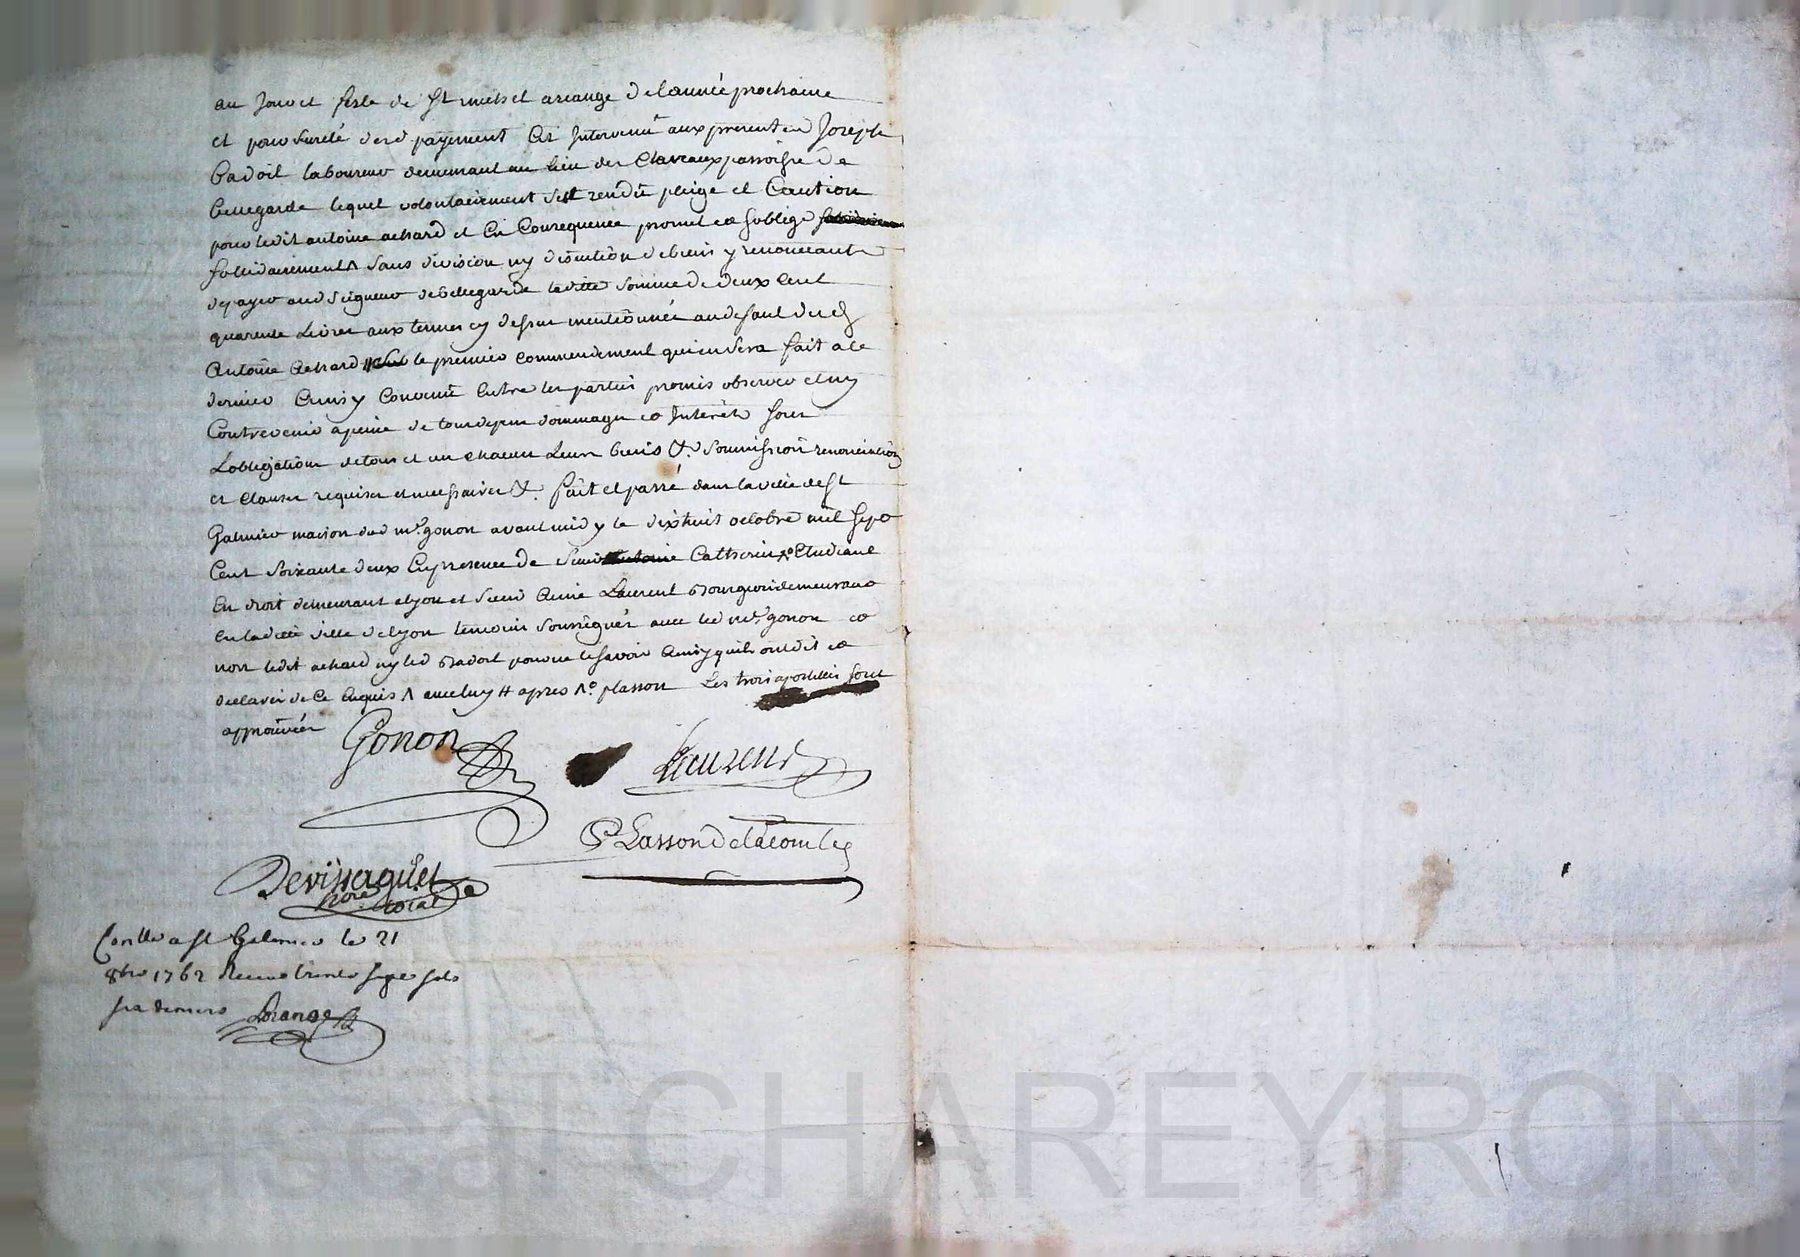 au Jour et feste de St michel arcange de lannée prochaine
et pour sureté dud payement Est Intervenu aux presentes Joseph
Badoil laboureur demeurant au lieu des Claveaux parroisse de
bellegarde lequel volontairement sest rendu pleige et Caution
pour ledit antoine achard et En Consequence promet et soblige
sollidairement Λ sans division ny discution de biens y renonceant
de payer aud seigneur de bellegarde laditte somme de deux Cent
quarente Livres aux termes cy dessus mentionnée au defaut dud
Antoine Achard // le premier commendement qui en sera fait a ce
dernier Ainsy Convenu Entre les parties promis observer et ny
Contrevenir a peine de tous depens dommages et Interêts sous
Lobligation de tous et un chacun Leurs biens &. soumission renonciation
et Clauses requises et necessaires &. fait et passé dans la ville de St
Galmier maison dud me. gonon avant midy le dixhuit octobre mil sept
Cent soixante deux En presence de sieur Catherin x° Etudiant
En droit demeurant a lyon et sieur Aimé Laurent Bourgeois demeurant
en laditte ville de lyon temoins soussignés avec led me. gonon et
non ledit achard ny led Badoil pour ne le savoir Ainsy quils ont dit et
declarer de Ce Enquis Λ avec luy # apres Λ° plasson Les trois apostilles sont
approuvées
Gonon
Laurent
Plasson Delacombe
Devissaguet
notaire roial
Conllé a St Galmier le 21
8bre 1762 Receu trente sept sols
six deniers Lorange
Pascal CHAREYRON